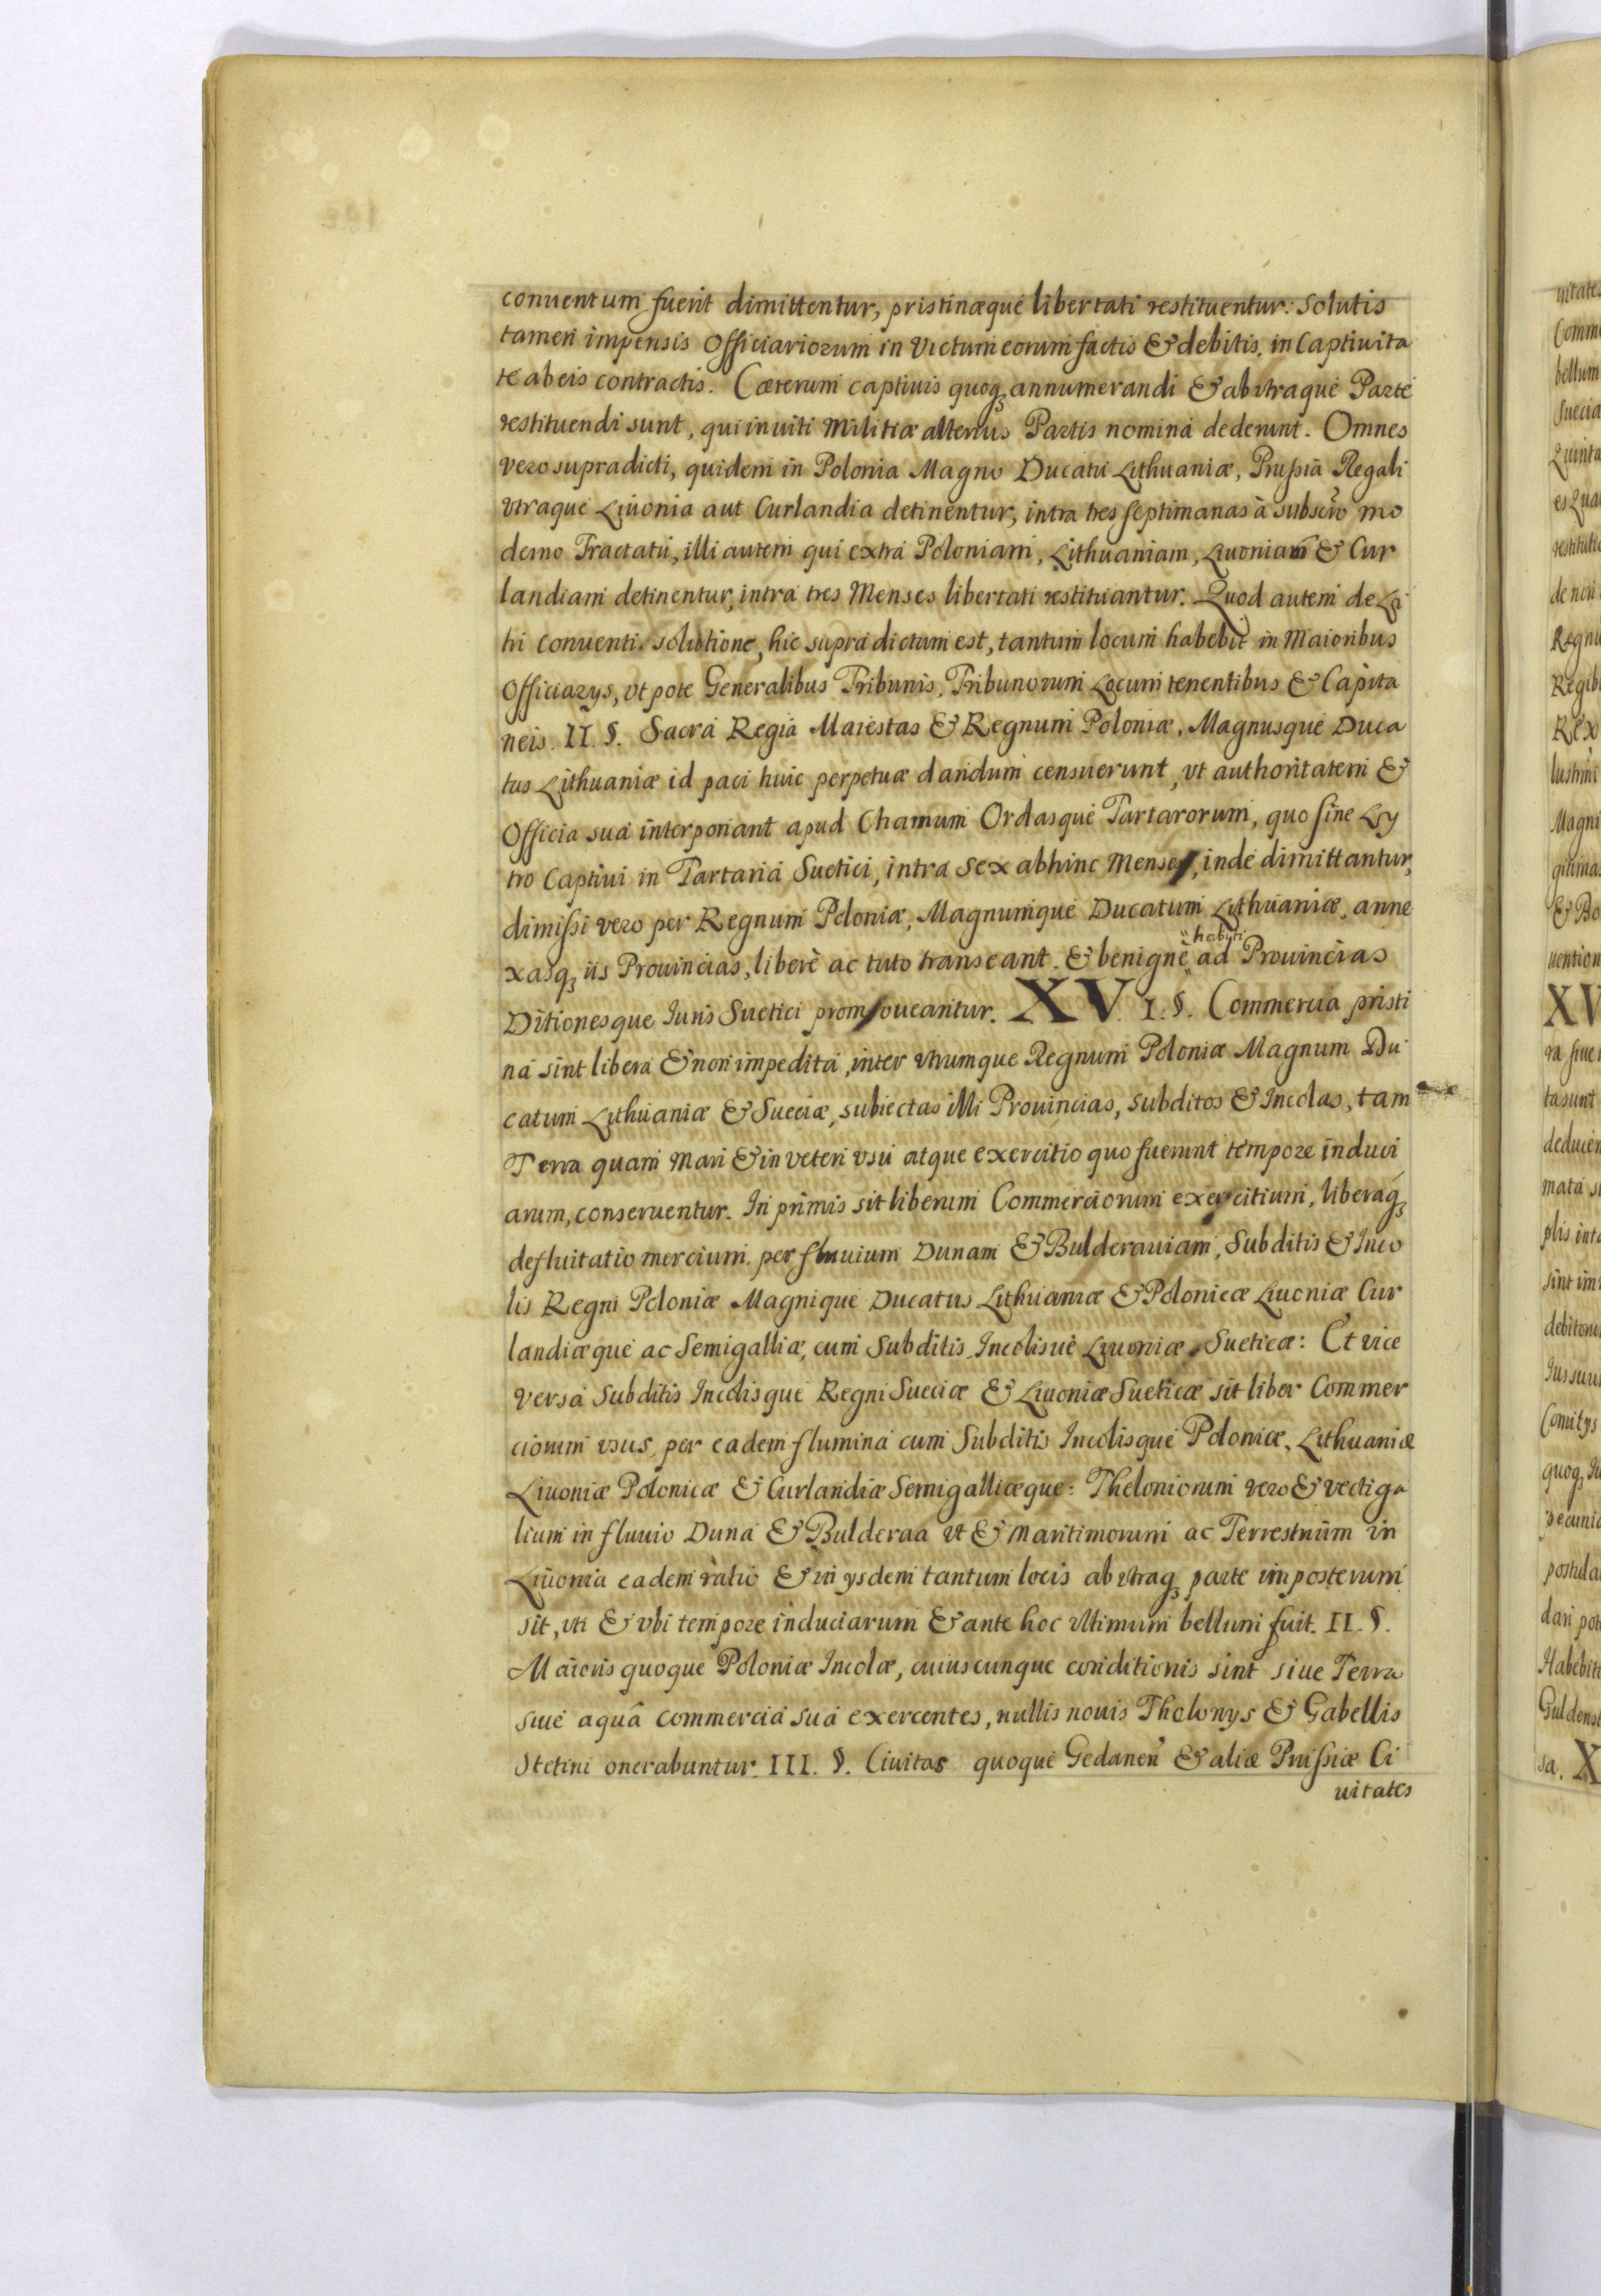 conuentum fuerit dimittentur, pristinæque libertati restituentur: Solutis
tamen impensis Officiariorum in Victum eorum factis & debitis, in Captiuita
te ab eis contractis. Cæterum captiuis quoq₃ annumerandi & ab vtraque Parte
restituendi sunt, qui inuiti Militiæ alterius Partis nomina dederunt. Omnes
vero supradicti, quidem in Polonia Magno Ducatu Lithuaniæ, Prussia Regali
vtraque Liuonia aut Curlandia detinentur, intra tres septimanas à subscro mo
derno Tractatu, illi autem qui extra Poloniam, Lithuaniam, Liuoniam & Cur
landiam detinentur, intra tres Menses libertati restituantur. Quod autem de Ly
tri conuenti solutione, hic supra dictum est, tantum locum habebit in Maioribus
Officiarys, vt pote Generalibus Tribunis, Tribunorum Locum tenentibus & Capita
neis. II. §. Sacra Regia Maiestas & Regnum Poloniæ, Magnusque Duca
tus Lithuaniæ id paci huic perpetuæ dandum censuerunt, vt authoritatem &
Officia sua interponant apud Chamum Ordasque Tartarorum, quo sine Ly
tro Captiui in Tartaria Suetici, intra Sex abhinc Menses, inde dimittantur,
dimissi vero per Regnum Poloniæ, Magnumque Ducatum Lithuaniæ, anne
xasq₃ iis Prouincias, liberè ac tuto transeant. & benignè habiti ad Prouincias
Ditionesque Iuris Suetici promoueantur. XV. I. §. Commercia pristi
na sint libera & non impedita, inter vtrumque Regnum Poloniæ Magnum Du
catum Lithuaniæ & Sueciæ, subiectas illi Prouincias, subditos & Incolas, tam
Terra quam Mari & in veteri vsu atque exercitio quo fuerunt tempore induci
arum, conseruentur. In primis sit liberum Commerciorum exercitium, liberaq₃
defluitatio mercium per fluuium Dunam & Bulderauiam, Subditis & Inco
lis Regni Poloniæ Magnique Ducatus Lithuaniæ & Polonicæ Liuoniæ Cur
landiæque ac Semigalliæ, cum Subditis Incolisuè Liuoniæ Sueticæ: Et vice
versa Subditis Incolisque Regni Sueciæ & Liuoniæ Sueticæ sit liber Commer
ciorum vsus, per eadem flumina cum Subditis Incolisque Poloniæ, Lithuaniæ
Liuoniæ Polonicæ & Curlandiæ Semigalliæque: Theloniorum vero & vectiga
lium in fluuio Duna & Bulderaa vt & Maritimorum ac Terrestrium in
Liuonia eadem ratio & in ysdem tantum locis ab vtraq₃ parte imposterum
sit, vti & vbi tempore induciarum & ante hoc vltimum bellum fuit. II. §.
Maioris quoque Poloniæ Incolæ, cuiuscunque conditionis sint siue Terra
siue aquâ commercia sua exercentes, nullis nouis Thelonys & Gabellis
Stetini onerabuntur. III. §. Ciuitas quoque Gedanen & aliæ Prussiæ Ci
uitates